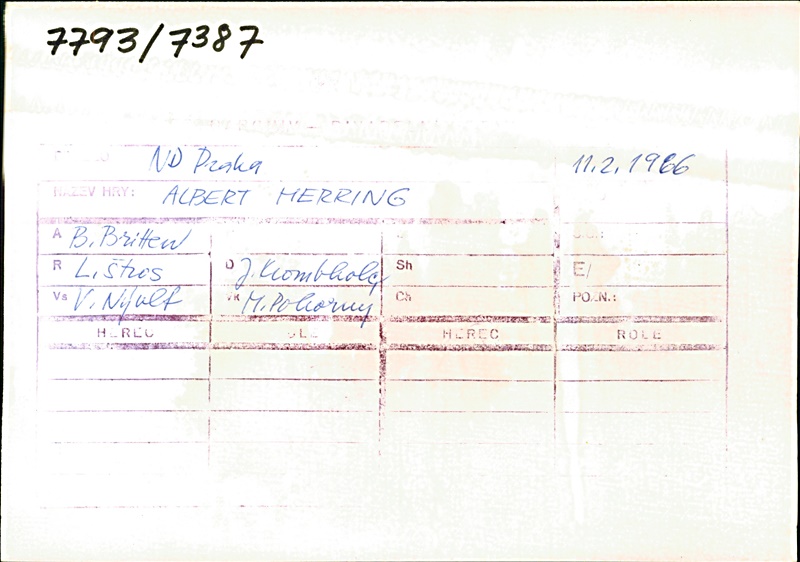 7793/7387
ND Praha 11.2.1966
NÁZEV HRY: ALBERT HERRING
A B. Britten
R L. Štros D J. Krombholc Sh E/
Vs V. Nývlt VK M. Pokorný Ch POZN.:
HEREC HEREC ROLE